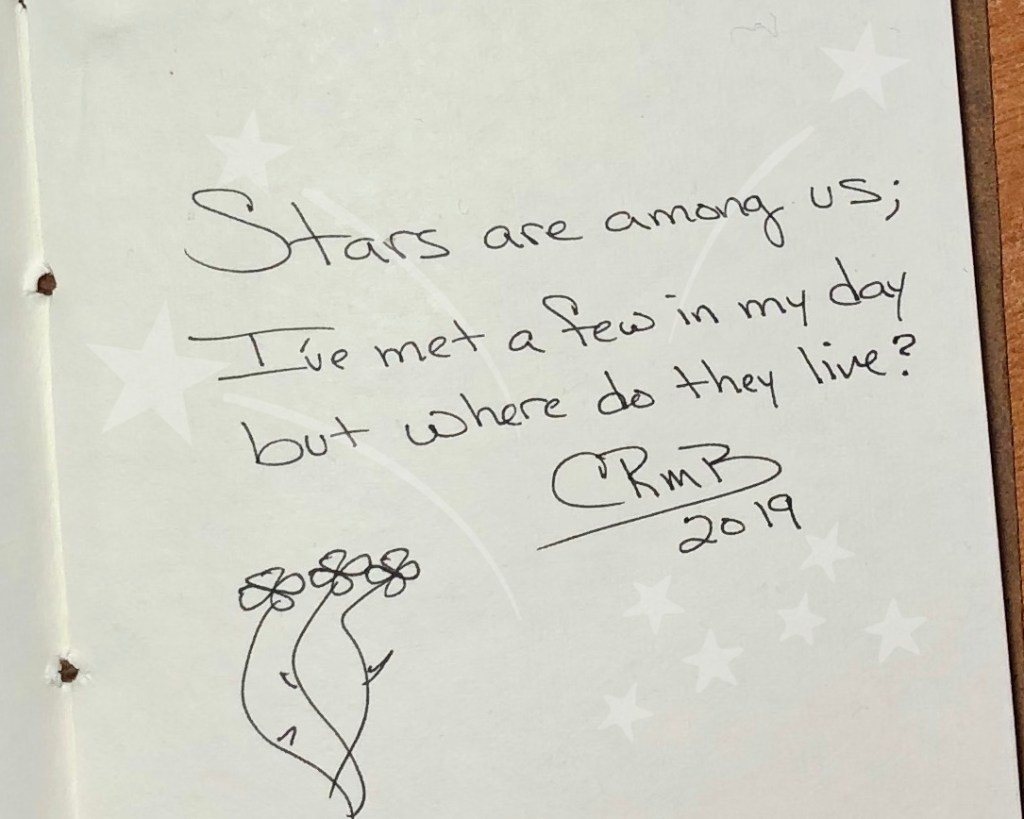 Stars are among us;
I've met a few in my day
but where do they live?
CRmB
2019